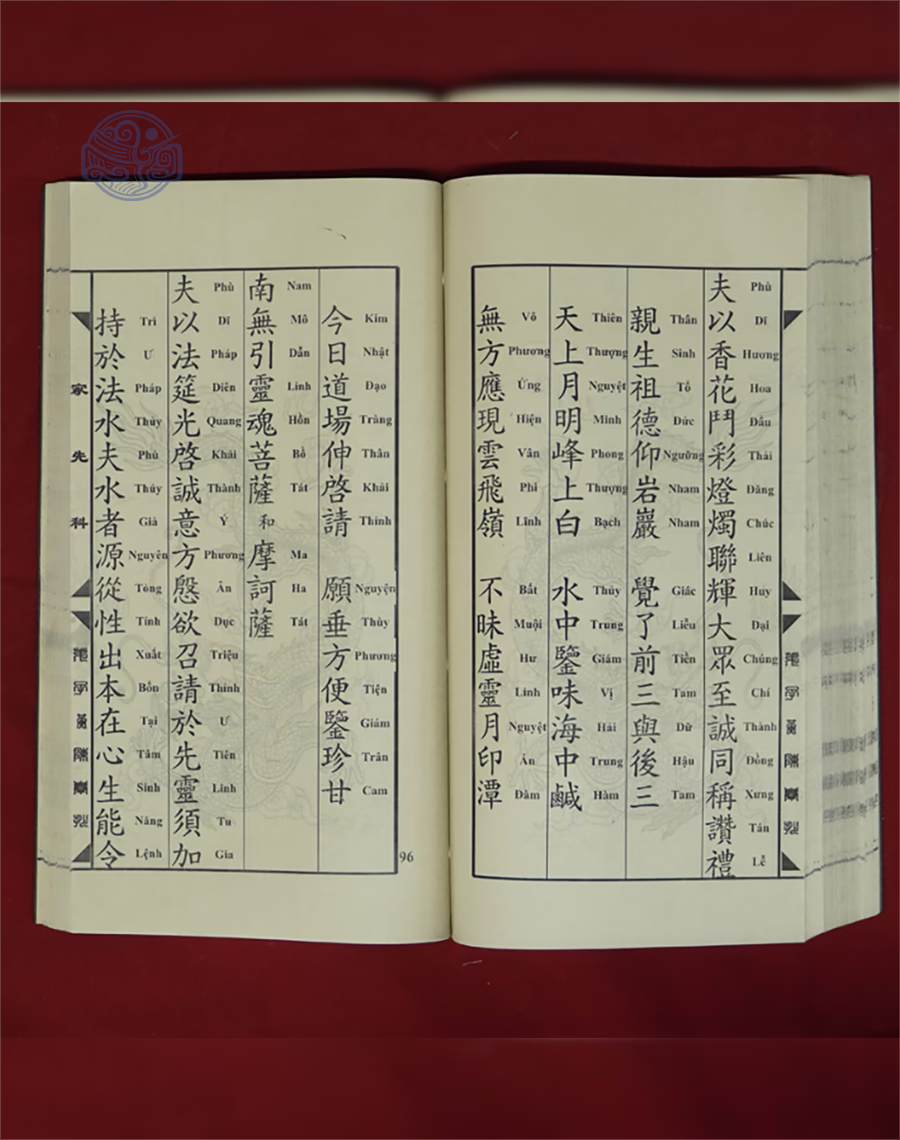 夫以香花鬥彩燈燭聯輝大眾至誠同稱讚禮
Phù Dĩ Hương Hoa Đấu Thái Đăng Chúc Liên Huy Đại Chúng Chí Thành Đồng Xưng Tán Lễ
親生祖德仰岩巖 覺了前三與後三
Thân Sinh Tổ Đức Ngưỡng Nham Nham Giác Liễu Tiền Tam Dữ Hậu Tam
天上月明峰上白 水中鑒味海中鹹
Thiên Thượng Nguyệt Minh Phong Thượng Bạch Thủy Trung Giám Vị Hải Trung Hàm
無方應現雲飛嶺 不昧虛靈月印潭
Vô Phương Ứng Hiện Vân Phi Lĩnh Bất Muội Hư Linh Nguyệt Ấn Đàm
今日道場伸啓請 願垂方便鑒珍甘
Kim Nhật Đạo Tràng Thân Khải Thỉnh Nguyện Thùy Phương Tiện Giám Trân Cam
南無引靈魂菩薩和摩訶薩
Nam Mô Dẫn Linh Hồn Bồ Tát Ma Ha Tát
夫以法筵光啓誠意方慇欲召請於先靈須加
Phù Dĩ Pháp Diên Quang Khải Thành Ý Phương Ân Dục Triệu Thỉnh Ư Tiên Linh Tu Gia
持於法水夫水者源從性出本在心生能令
Trì Ư Pháp Thủy Phù Thủy Giả Nguyên Tòng Tính Xuất Bổn Tại Tâm Sinh Năng Lệnh
家先科
96